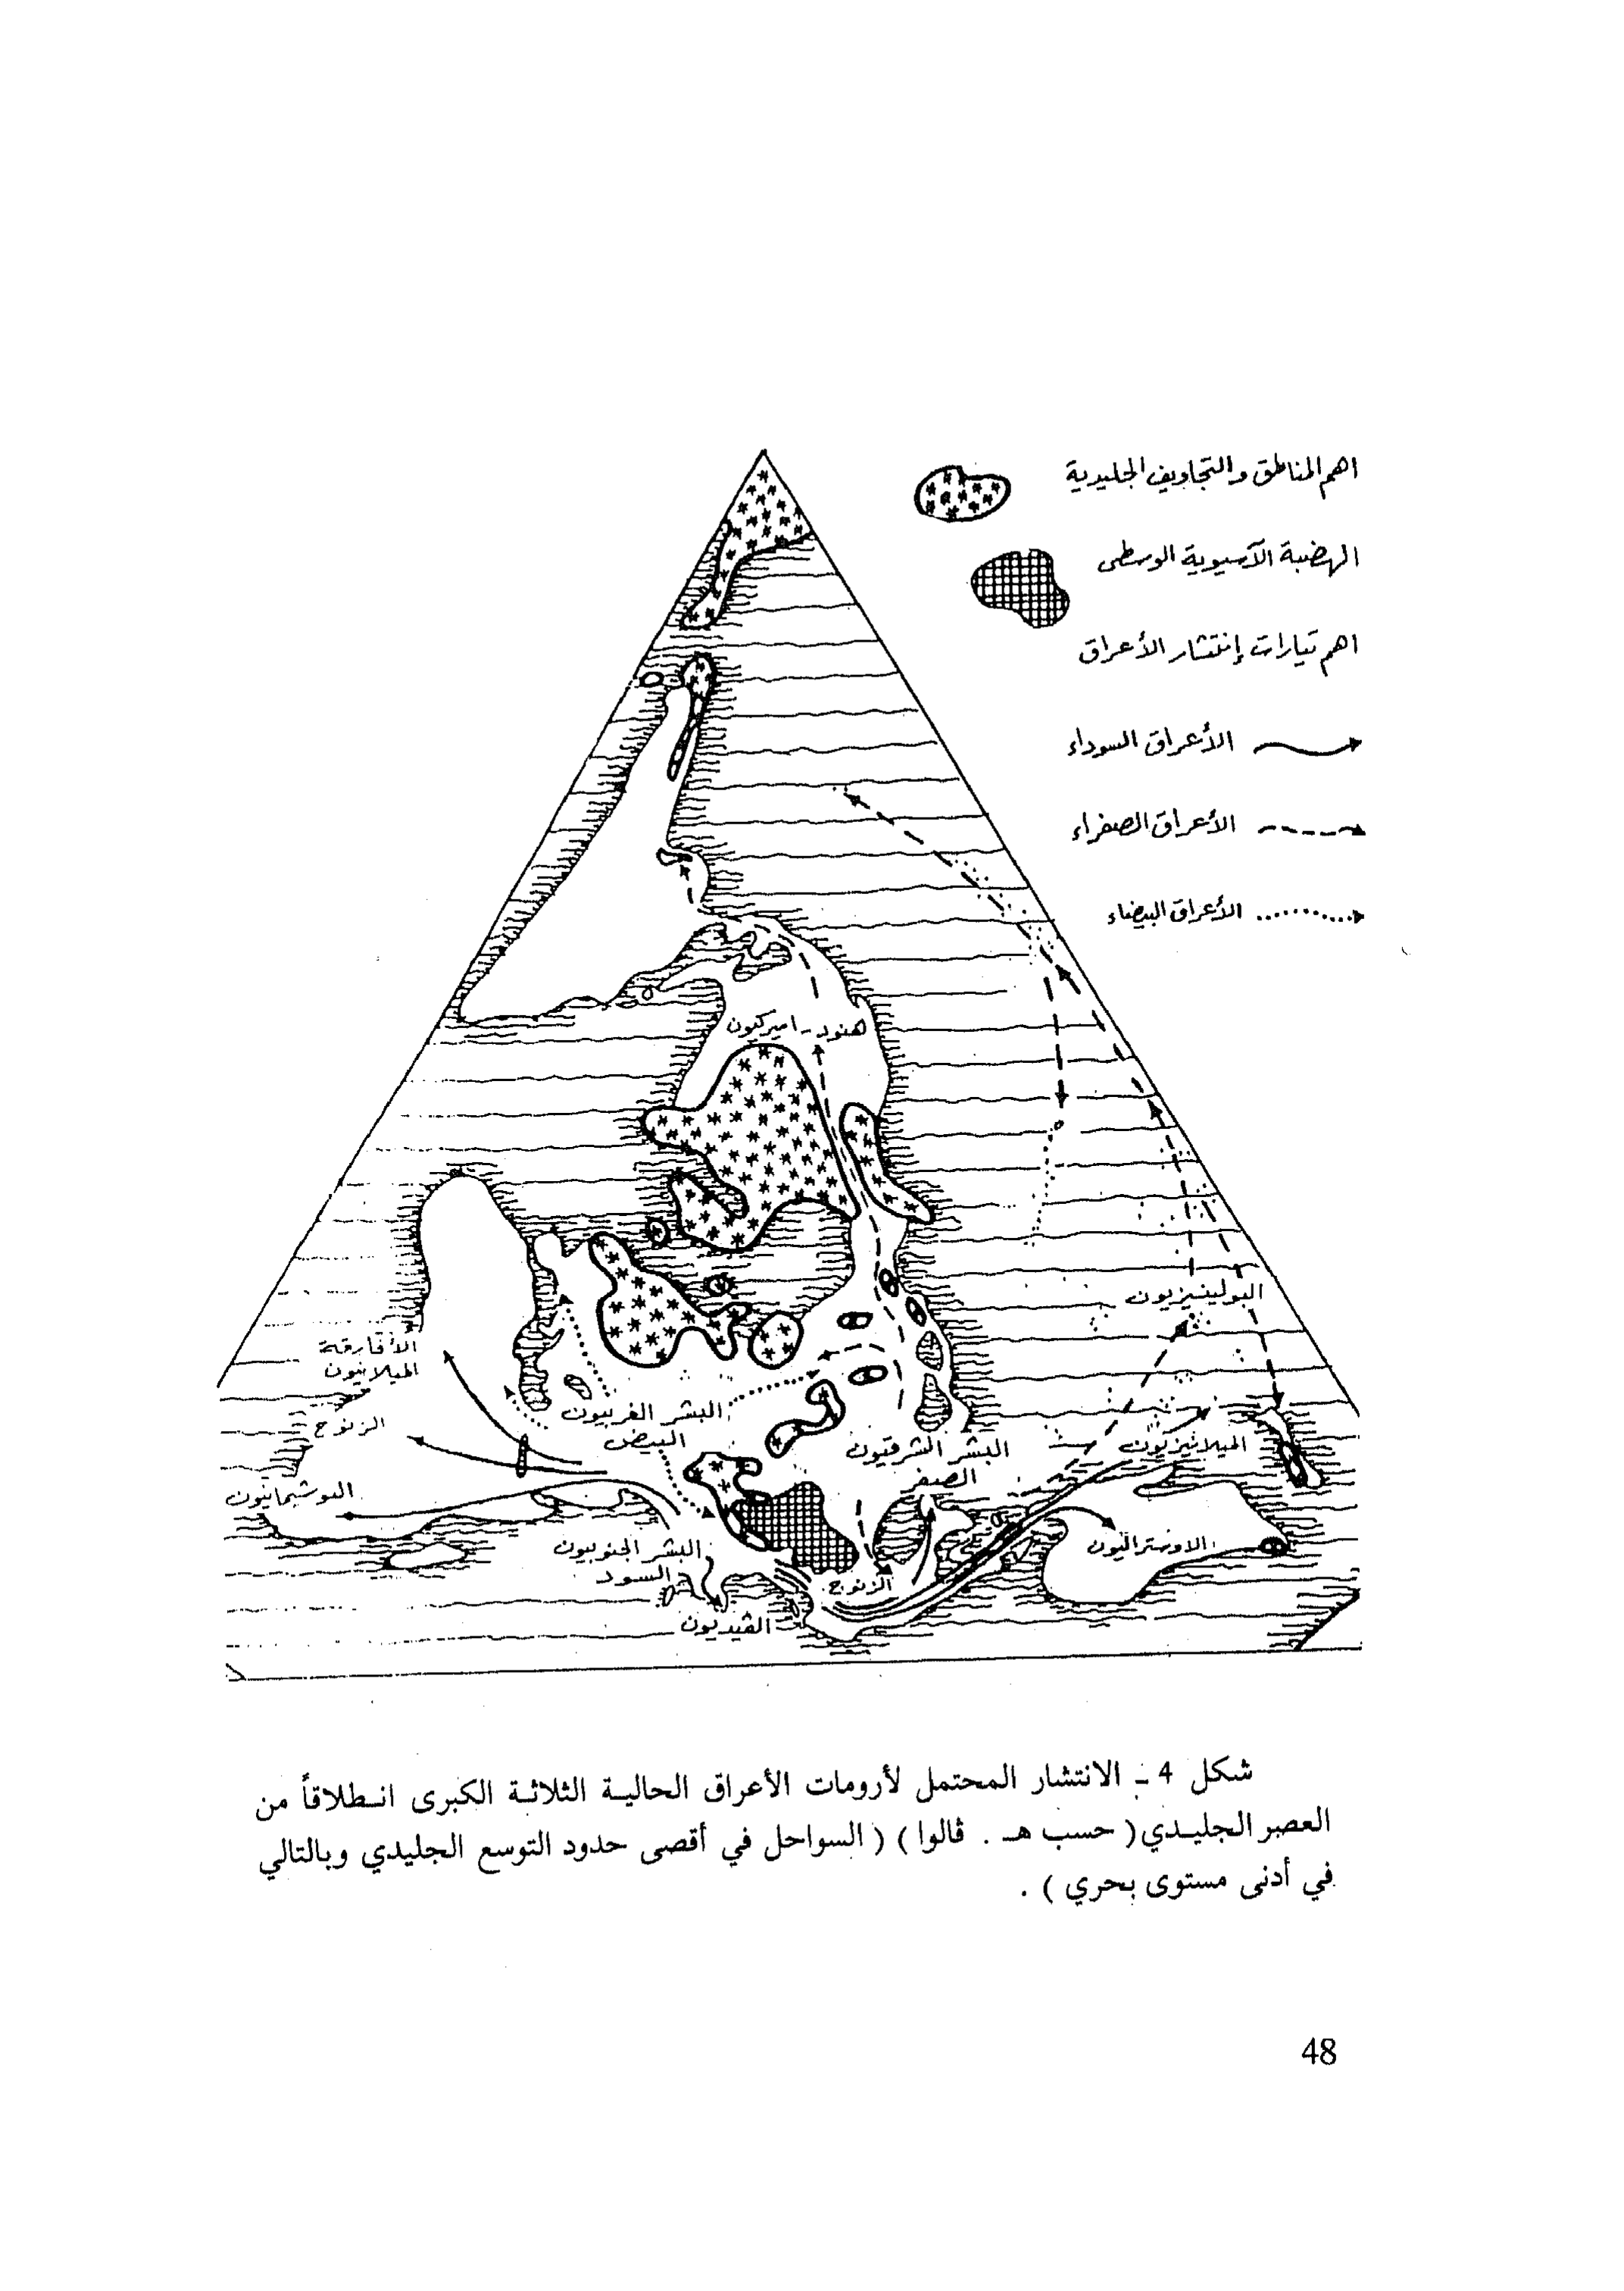 اهم المناطق والتجاويف الجليدية
الهضبة الآسيوية الوسطى
اهم تيارات إنتشار الأعراق
الأعراق السوداء
الأعراق الصفراء
الأعراق البيضاء
هنود - اميركيون
البولينيزيون
الأفارقة
الميلانيون
الزنوج
البشر الغربيون
البيض
البشر الشرقيون
الصفر
الميلانيزيون
البوشيمانيون
البشر الجنوبيون
السود
الاوستراليون
الزنوج
الڤيديون
شكل 4 ـ الانتشار المحتمل لأرومات الأعراق الحالية الثلاثة الكبرى انطلاقاً من
العصر الجليدي ( حسب هـ . ڤالوا ) ( السواحل في أقصى حدود التوسع الجليدي وبالتالي
في أدنى مستوى بحري ) .
48